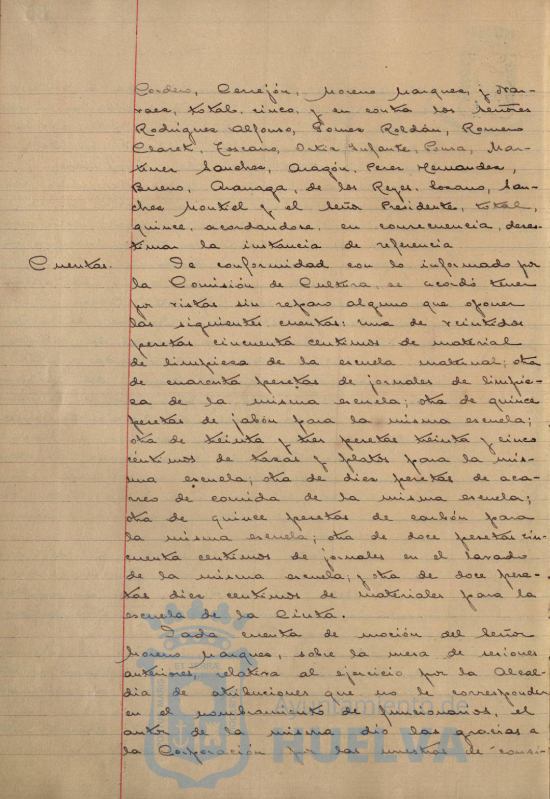 Cordero, Cerrejón, Moreno Marquez, y Nar-
vaez, total, cinco, y en contra los Señores
Rodriguez Alfonso, Gomez Roldán, Romero
Claret, Toscano, Ortiz Infante, Ponsa, Mar-
tinez Sanchez, Aragón, Perez Hernandez,
Bueno, Aranaga, de los Reyes, Lozano, San-
chez Montiel y el Señor Presidente, total,
quince, acordandose, en consecuencia, deses-
timar la instancia de referencia
Cuentas.
De conformidad con lo informado por
la Comisión de Cultura, se acordó tener
por vistas sin reparo alguno que oponer
las siguientes cuentas: una de veintidos
pesetas cincuenta centimos de material
de limpieza de la escuela maternal; otra
de cuarenta pesetas de jornales de limpie-
za de la misma escuela; otra de quince
pesetas de jabón para la misma escuela;
otra de treinta y tres pesetas treinta y cinco
centimos de tazas y platos para la mis-
ma escuela; otra de diez pesetas de aca-
rreo de comida de la misma escuela;
otra de quince pesetas de carbón para
la misma escuela; otra de doce pesetas cin-
cuenta centimos de jornales en el lavado
de la misma escuela; y otra de doce pese-
tas diez centimos de materiales para la
escuela de la Cinta.
Dada cuenta de moción del Señor
Moreno Marquez, sobre la mesa de sesiones
anteriores, relativa al ejercicio por la Alcal-
dia de atribuciones que no le corresponden
en el nombramiento de funcionarios, el
autor de la misma dió las gracias a
la Corporación por las muestras de consi-
Ayuntamiento de
HUELVA